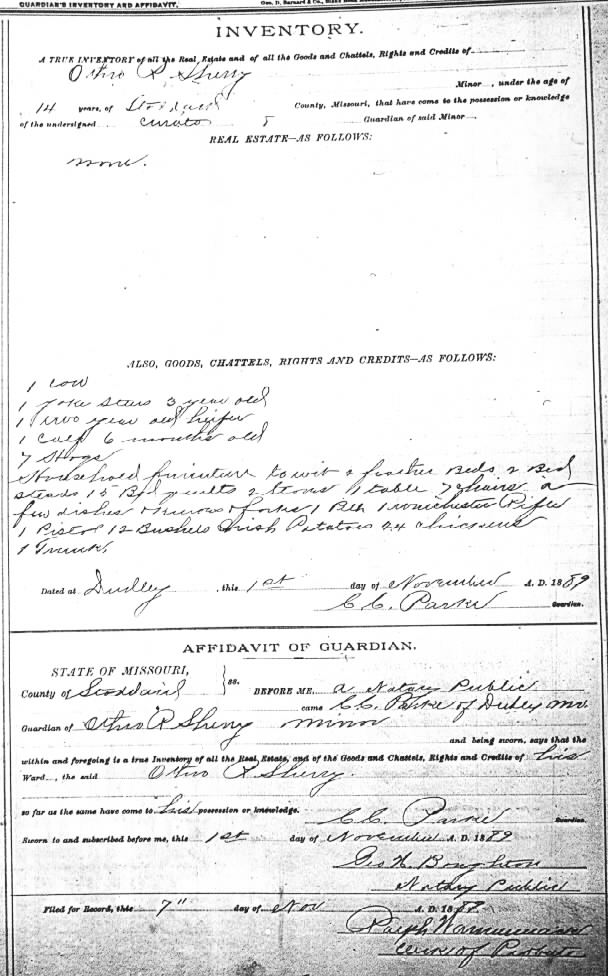 GUARDIAN'S INVENTORY AND AFFIDAVIT.
Geo. D. Barnard & Co.,
INVENTORY.
A TRUE INVENTORY of all the Real Estate and of all the Goods and Chattels, Rights and Credits of
Otho R Sherry
Minor , under the age of
14 years, of Stoddard County, Missouri, that have come to the possession or knowledge
of the undersigned curator Guardian of said Minor
REAL ESTATE—AS FOLLOWS:
none.
ALSO, GOODS, CHATTELS, RIGHTS AND CREDITS—AS FOLLOWS:
1 Cow
1 yoke stears 3 year old
1 two year old heifer
1 calf 6 months old
7 Hogs
Household furniture towit 2 feather Beds 2 Bed
steads 15 Bed quilts 1 table 7 chairs a
few dishes forks 1 winchester Rifle
1 Pistol 12 Bushels Irish Potatoes 24 chickens
1 Trunk
Dated at Dudley , this 1st day of November A. D. 1889
C. C. Parke Guardian.
AFFIDAVIT OF GUARDIAN.
STATE OF MISSOURI,
County of Stoddard } ss. BEFORE ME, a Notary Public
came C. C. Parke of Dudley Mo.
Guardian of Otho R Sherry minor
and being sworn, says that the
within and foregoing is a true Inventory of all the Real, Estate, and of the Goods and Chattels, Rights and Credits of his
Ward , the said Otho R Sherry.
so far as the same have come to his possession or knowledge. C. C. Parke Guardian.
Sworn to and subscribed before me, this 1st day of November A. D. 1889
Geo H. Boughton
Notary Public
Filed for Record, this 7" day of Nov A. D. 1889
Ralph
Clerk of Probate